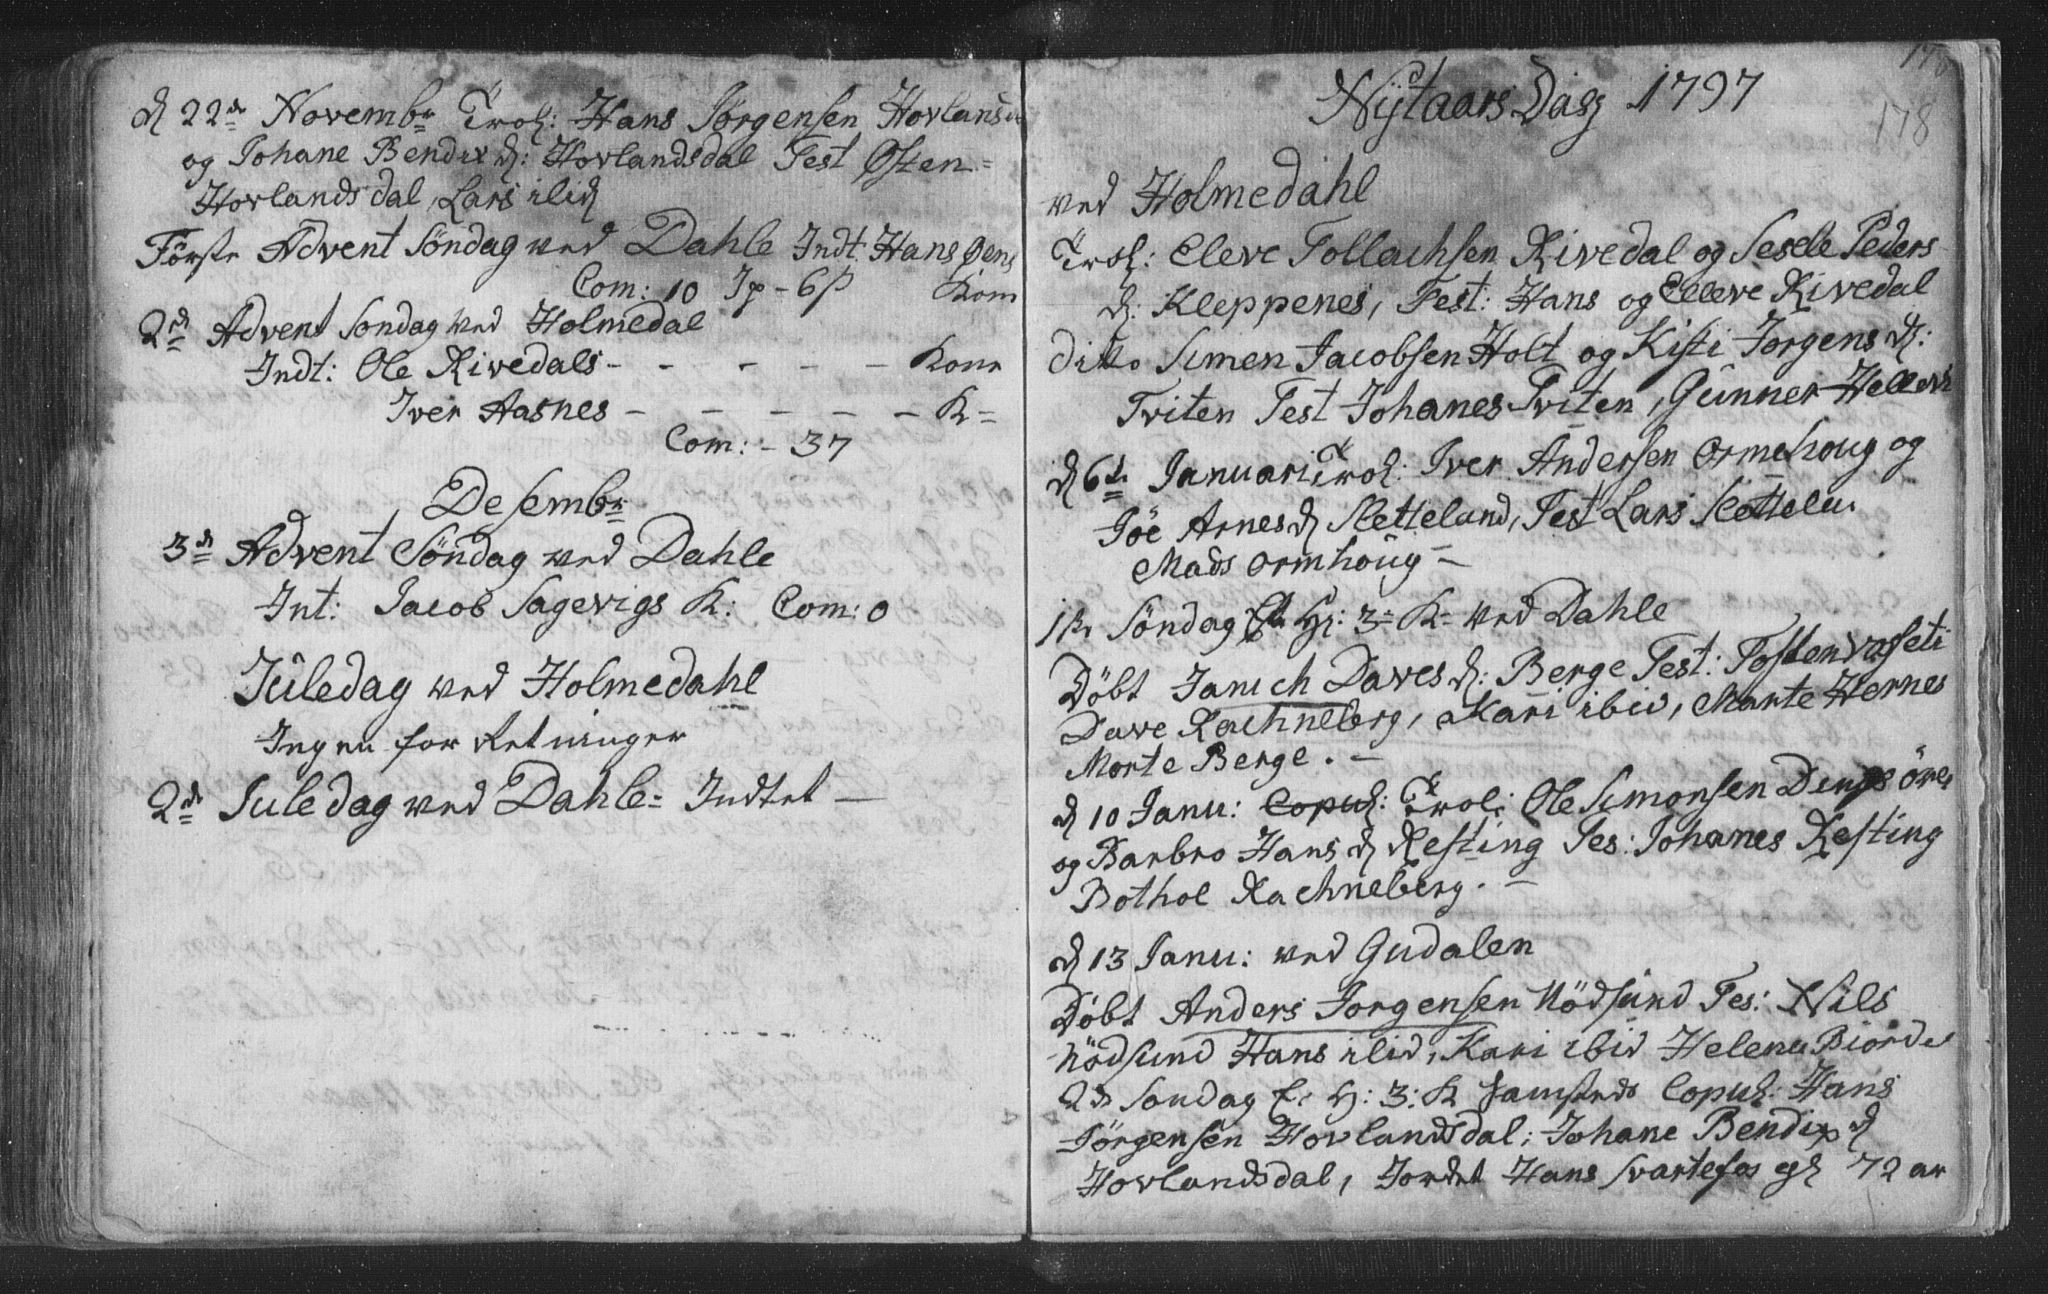 d 22de Novembr Trol: Hans Jørgensen Hovlands
og Johane Bendix d: Hovlandsdal Test Østen=
Hovlandsdal, Lars ibid
Første Advent Søndag ved Dahle Indt. Hans Øens
Com: 10 Kom
2d Advent Søndag ved Holmedal
Indt: Ole Rivedals - - - - - Kone
Iver Aasnes - - - - - K=
Com: - 37
Desembr
3de Advent Søndag ved Dahle
Int: Jacob Sagevigs K: Com: 0
Juledag ved Holmedahl
Ingen forretninger
2de Juledag ved Dahle= Indtet —
178
Nÿtaars Dag 1797
ved Holmedahl
Trol: Eleve Tollachsen Rivedal og Sesele Peders
d: Kleppenes, Test: Hans og Elleve Rivedal
ditto Simen Jacobsen Holt og Kisti Jørgens d:
Tviten Test Johanes Tviten, Gunner Hellevi
d 6te Januari Trol: Iver Andersen Ormehoug og
Arnes d Sletteland, Test Lars Slettelu.
Mads Ormhoug —
1te Søndag Ef. H: 3= K= ved Dahle
Døbt Janich Daves d: Berge Test: Tosten
Dave Rachneberg, Kari ibid, Marte Hernes
Morte Berge. —
d 10 Janu: Copul: Trol: Ole Simonsen
og Barbro Hans d Resting Tes: Johanes Resting
Bothol Rachneberg. —
d 13 Janu: ved Gudalen
Døbt Anders Jorgensen Nödsund Tes: Nils
Nödsund Hans ibid, Kari ibid Helena Biorde
2d Søndag E. H: 3: K Copul: Hans
Jørgensen Hovlandsdal; Johane Bendix d
Hovlandsdal, Jordet Hans Svartefos 72 ar